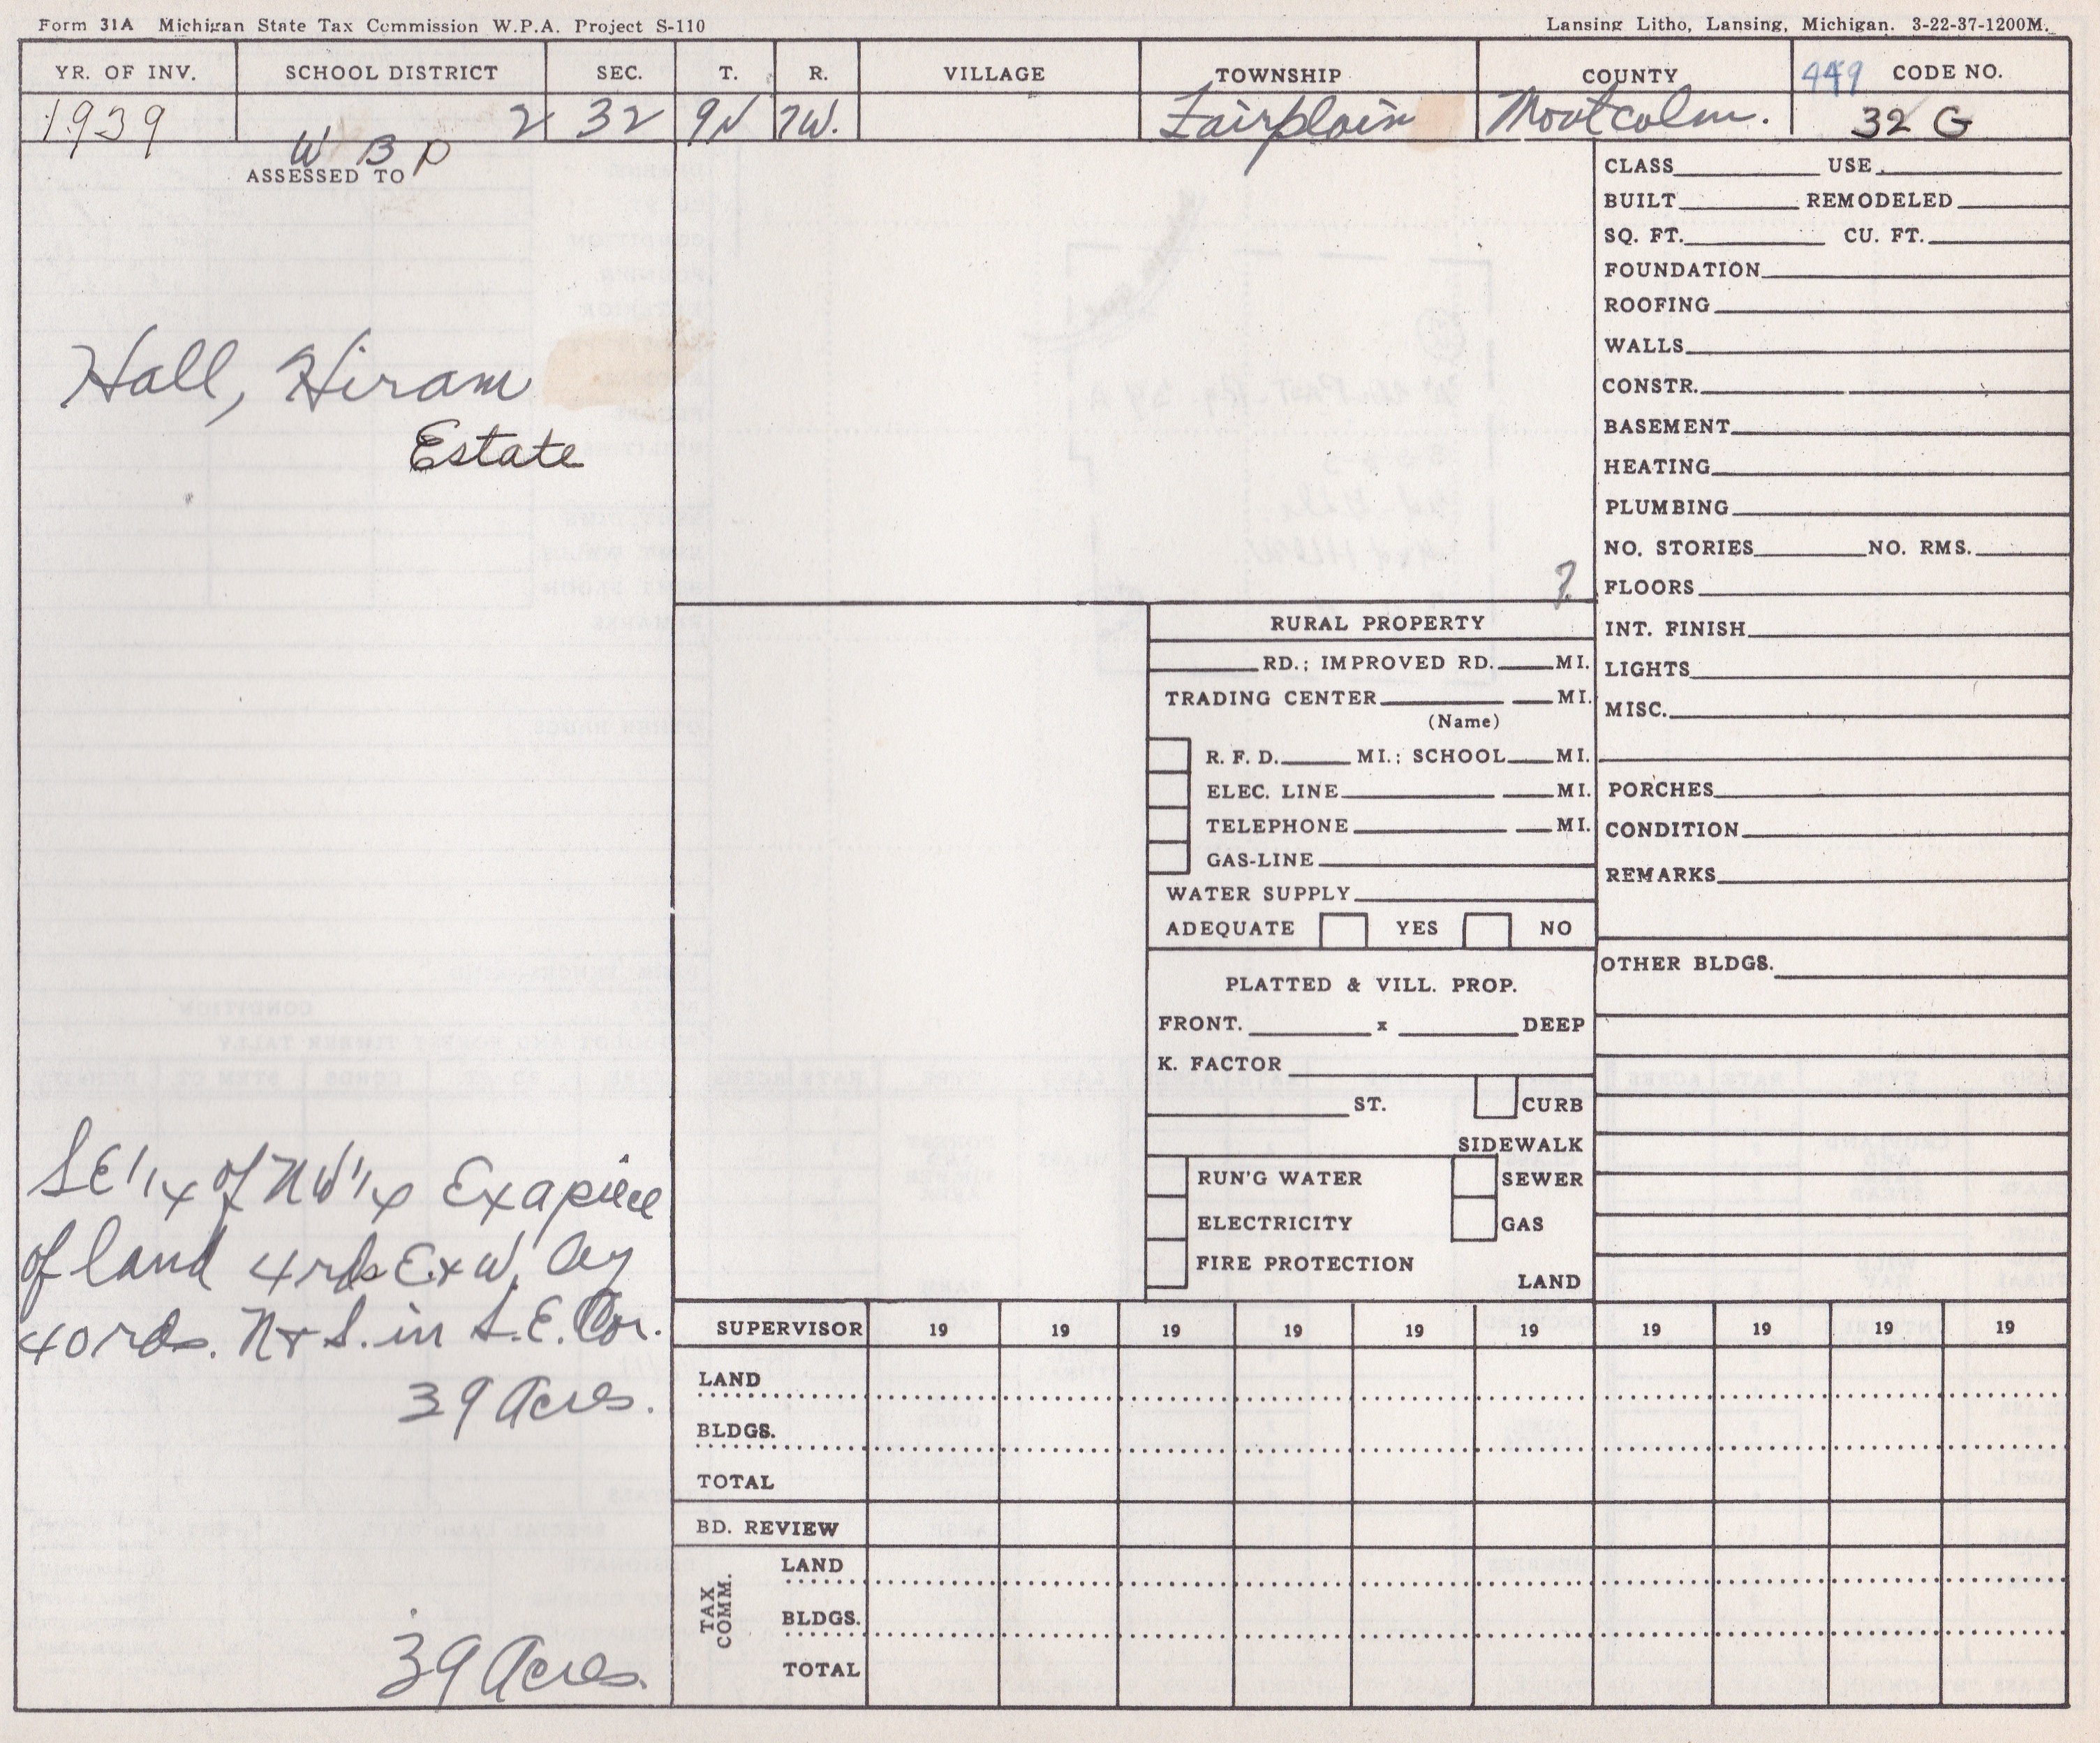 Form 31A Michigan State Tax Commission W.P.A. Project S-110
Lansing Litho, Lansing, Michigan. 3-22-37-1200M.
YR. OF INV. SCHOOL DISTRICT SEC. T. R. VILLAGE TOWNSHIP COUNTY 449 CODE NO.
1939 2 32 9N 7W. Fairplain Montcalm. 32 G
W B P
ASSESSED TO
Hall, Hiram
Estate
SE 1/4 of NW 1/4 Ex a piece
of land 4 rds E. & W. by
40 rds. N & S. in S.E. Cor.
39 Acres.
39 Acres.
?
RURAL PROPERTY
RD.; IMPROVED RD. MI.
TRADING CENTER MI.
(Name)
R. F. D. MI.; SCHOOL MI.
ELEC. LINE MI.
TELEPHONE MI.
GAS-LINE
WATER SUPPLY
ADEQUATE YES NO
PLATTED & VILL. PROP.
FRONT. x DEEP
K. FACTOR
ST. CURB
SIDEWALK
RUN'G WATER SEWER
ELECTRICITY GAS
FIRE PROTECTION
LAND
CLASS USE
BUILT REMODELED
SQ. FT. CU. FT.
FOUNDATION
ROOFING
WALLS
CONSTR.
BASEMENT
HEATING
PLUMBING
NO. STORIES NO. RMS.
FLOORS
INT. FINISH
LIGHTS
MISC.
PORCHES
CONDITION
REMARKS
OTHER BLDGS.
SUPERVISOR 19 19 19 19 19 19 19 19 19 19
LAND
BLDGS.
TOTAL
BD. REVIEW
TAX COMM.
LAND
BLDGS.
TOTAL